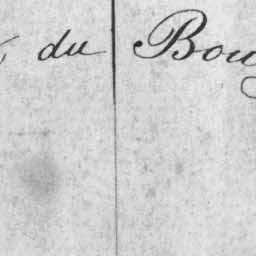 du Bou